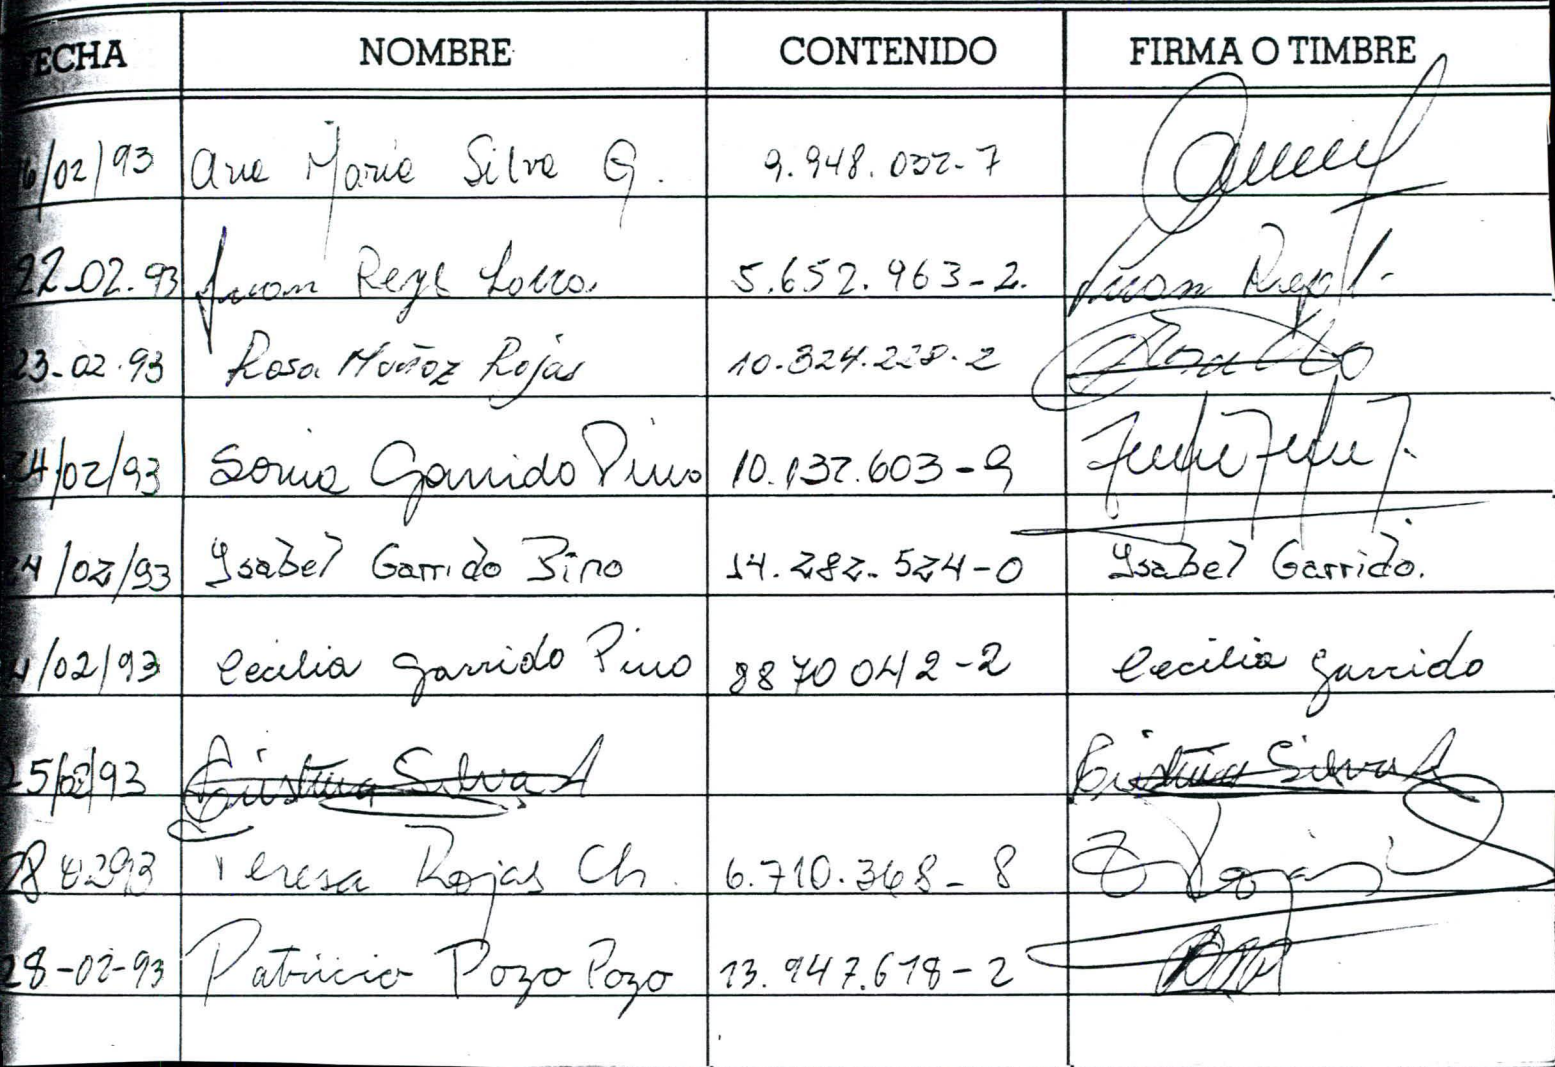 FECHA NOMBRE CONTENIDO FIRMA O TIMBRE
16/02/93 Ana Maria Silva G. 9.948.032-7
22.02.93 Juan Reye 5.652.963-2. Juan
23-02-93 Rosa Muñoz Rojas 10.324.228-2
24/02/93 Sonia Garrido Pino 10.132.603-9
24/02/93 Ysabel Garrido Pino 14.282.524-0 Ysabel Garrido.
24/02/93 Cecilia Garrido Pino 8870042-2 Cecilia Garrido
25/02/93 Cristina Silva A Cristina Silva A
28 0293 Teresa Rojas Ch. 6.710.368-8 Rojas
28-02-93 Patricio Pozo Pozo 13.947.618-2